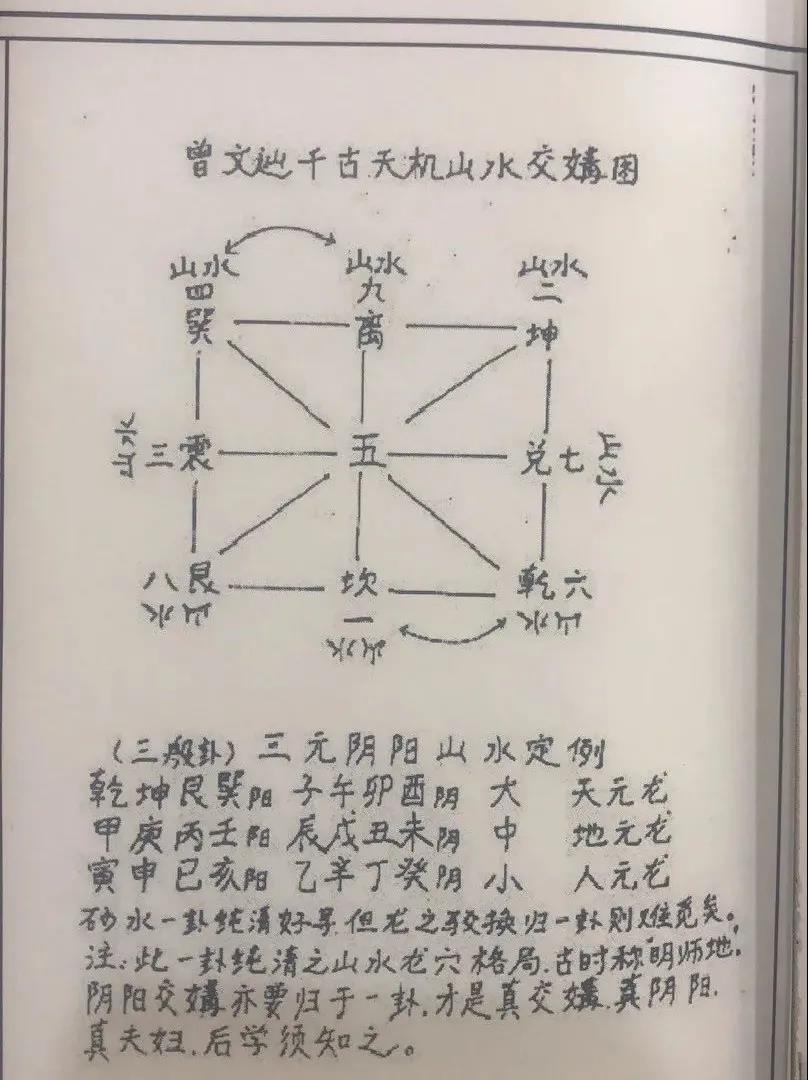 曾文辿千古天机山水交媾图
山水 山水 山水
四 九 二
巽 离 坤
山水 三震 五 兑七 山水
八艮 坎 乾六
山水 一 山水
山水
(三般卦)三元阴阳山水定例
乾坤艮巽阳 子午卯酉阴 大 天元龙
甲庚丙壬阳 辰戌丑未阴 中 地元龙
寅申巳亥阳 乙辛丁癸阴 小 人元龙
砂水一卦纯清好寻.但龙之驳换归一卦则难觅矣。
注:此一卦纯清之山水龙穴格局.古时称"明师地".
阴阳交媾亦要归于一卦.才是真交媾.真阴阳.
真夫妇.后学须知之。